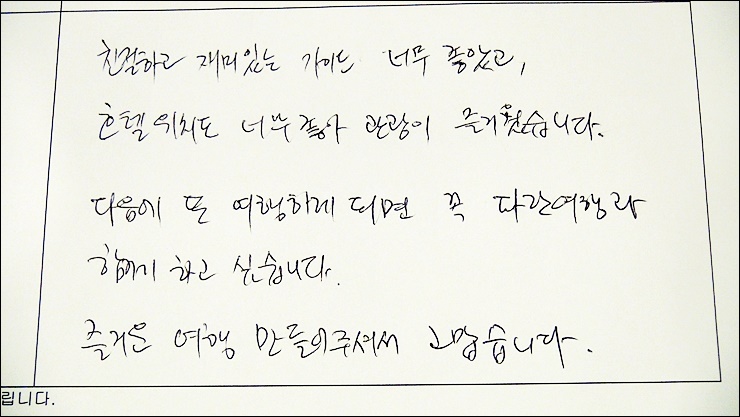 친절하고 재미있는 가이드 너무 좋았고,
호텔위치도 너무 좋아 관광이 즐거웠습니다.
다음에 또 여행하게 되면 꼭 다란여행과
함께 하고 싶습니다.
즐거운 여행 만들어주셔서 고맙습니다.
립니다.